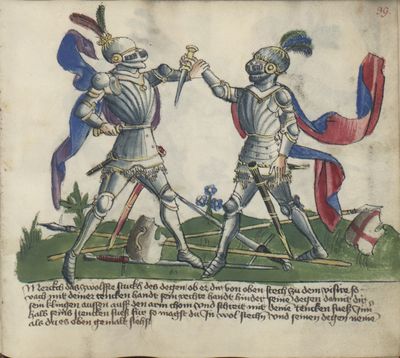 99
Merckh das zwolffte stuckh des degen ob er dir von oben stech zu dem visire so
vach mit deiner tencken handt sein rechte handt hinder seine degen damit dir
sein klingen aussen auff den arm chom und schreit mit deine tencken fuess Im
hals seins tencken fuess fur so magst du In wol stechn und seinen degen neme
als du es oben gemalt sichst